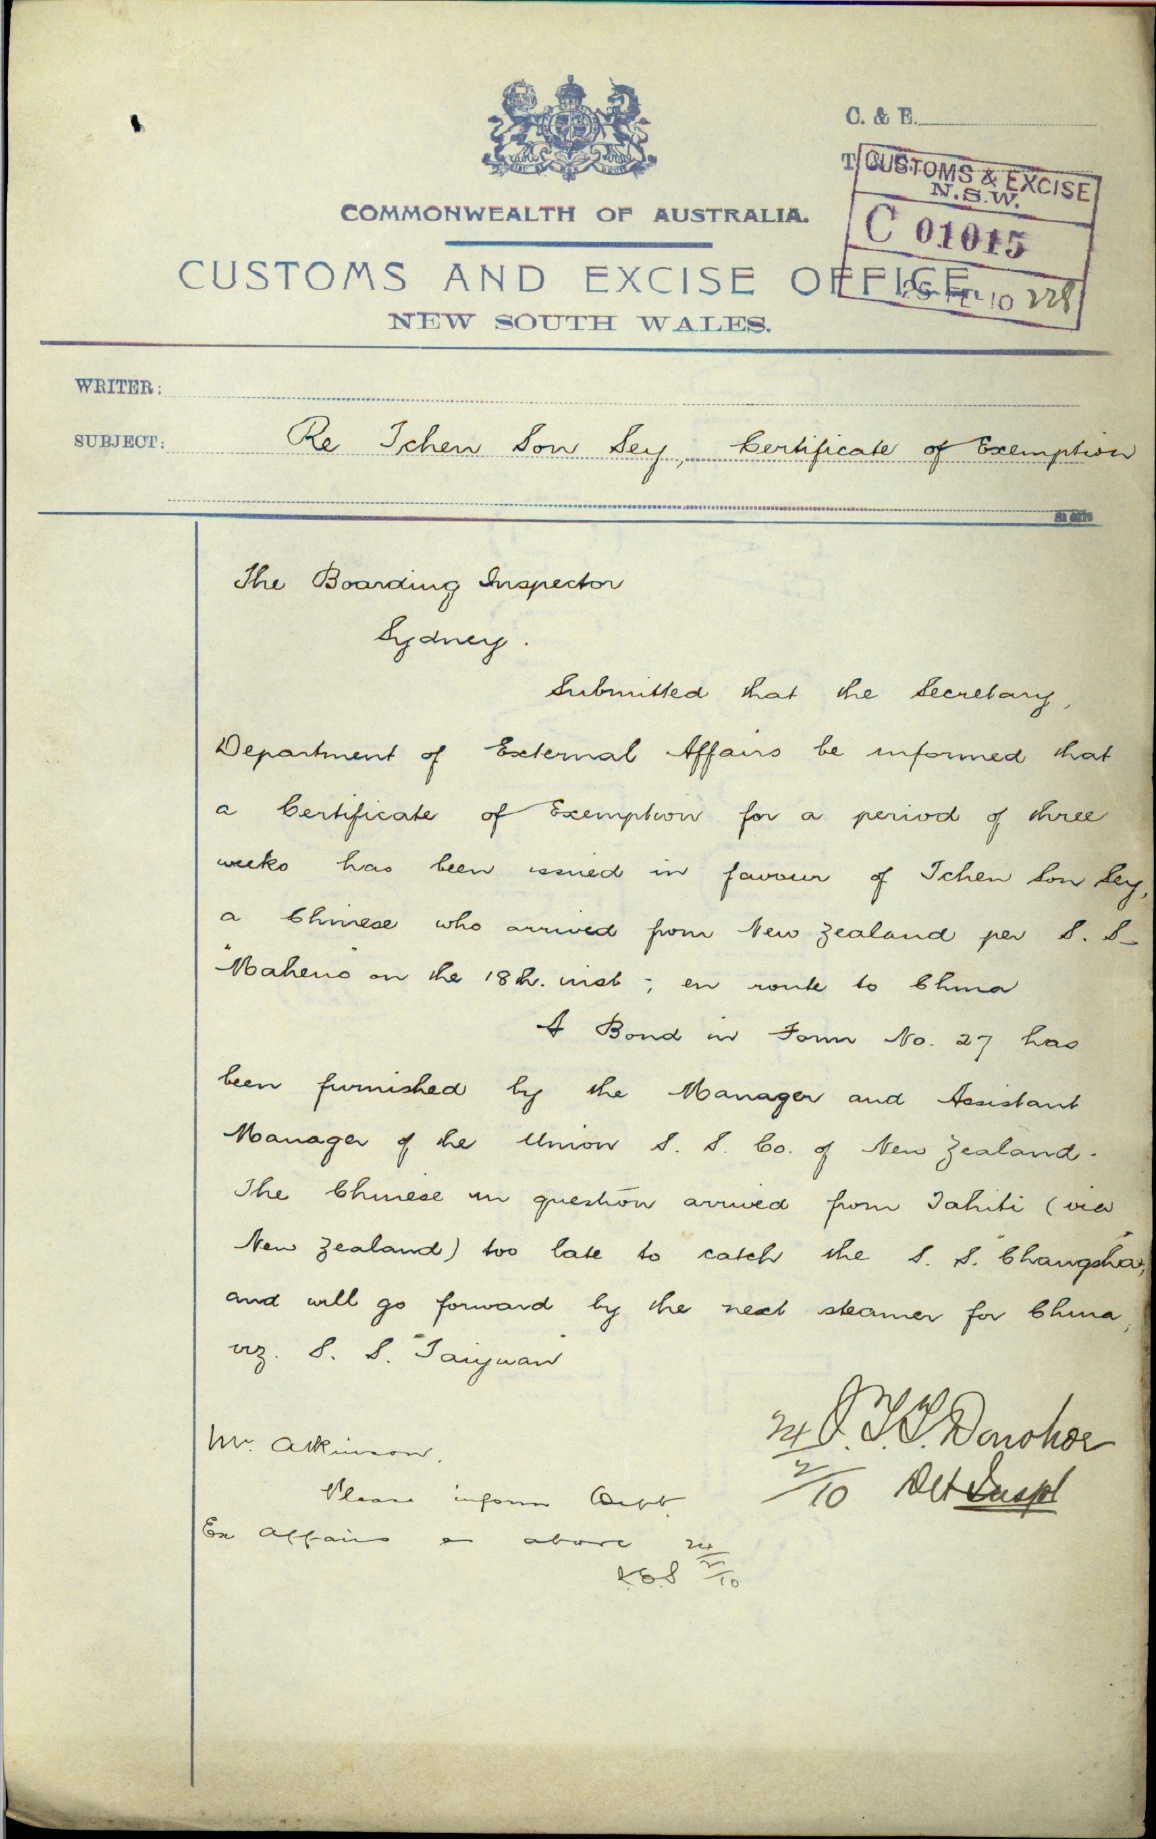 C. & E.
CUSTOMS & EXCISE
N.S.W.
C 01015
25 FE 10 228
COMMONWEALTH OF AUSTRALIA.
CUSTOMS AND EXCISE OFFICE,
NEW SOUTH WALES.
WRITER:
SUBJECT: Re Tchen Son Sey, Certificate of Exemption
The Boarding Inspector
Sydney.
Submitted that the Secretary,
Department of External Affairs be informed that
a Certificate of Exemption for a period of three
weeks has been issued in favour of Tchen Son Sey,
a Chinese who arrived from New Zealand per S. S.
"Maheno" on the 18th. inst-; en route to China
A Bond in Form No. 27 has
been furnished by the Manager and Assistant
Manager of the Union S. S. Co. of New Zealand.
The Chinese in question arrived from Tahiti (via
New Zealand) too late to catch the S. S. "Changsha",
and will go forward by the next steamer for China,
viz. S. S. "Taiyuan"
J.T.T. Donohoe
24/2/10 Det Inspr
Mr. Atkinson.
Please inform Dept.
Ex Affairs as above 24/2/10